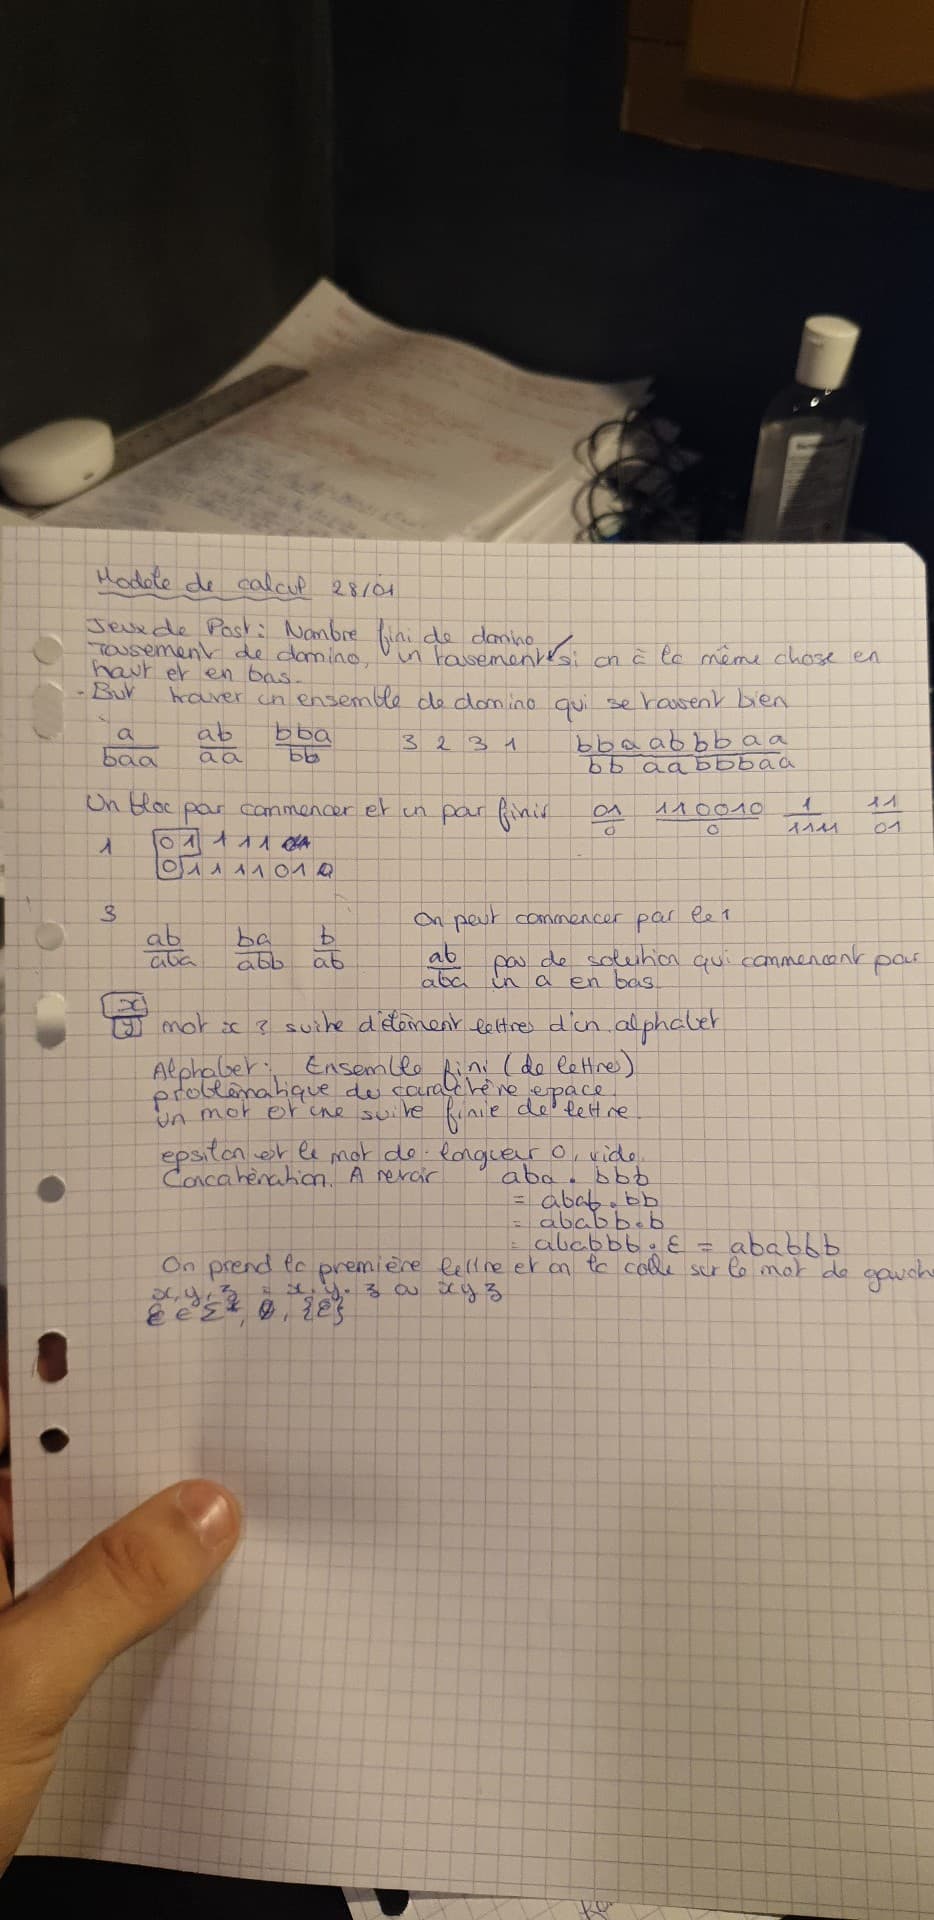 Modele de calcul 28/01
Jeux de Post : Nombre fini de domino
de domino, un si on à la même chose en
haut et en bas.
- But trouver un ensemble de domino qui se bien
a ab bba 3 2 3 1 bba ab bba a
baa aa bb bb aa bb baa
Un bloc par commencer et un par finir 01 110010 1 11
0 0 1111 01
1 01 1 11
0 1 1 1 1 01 0
3 On peut commencer par le 1
ab ba b
aba abb ab
ab pas de solution qui commencent par
aba un a en bas
x
y mot x ? suite d'élément lettres d'un alphabet
Alphabet : Ensemble fini (de lettres)
problématique du caractère espace
Un mot est une suite finie de lettre
epsilon est le mot de longueur 0, vide.
Concaténation. A revoir aba . bbb
= abab . bb
= ababb . b
= ababbb . ε = ababbb
On prend la première lettre et on la colle sur le mot de gauch
x, y, z = x . y . z ou xyz
ε ∈ Σ*, ∅, {ε}